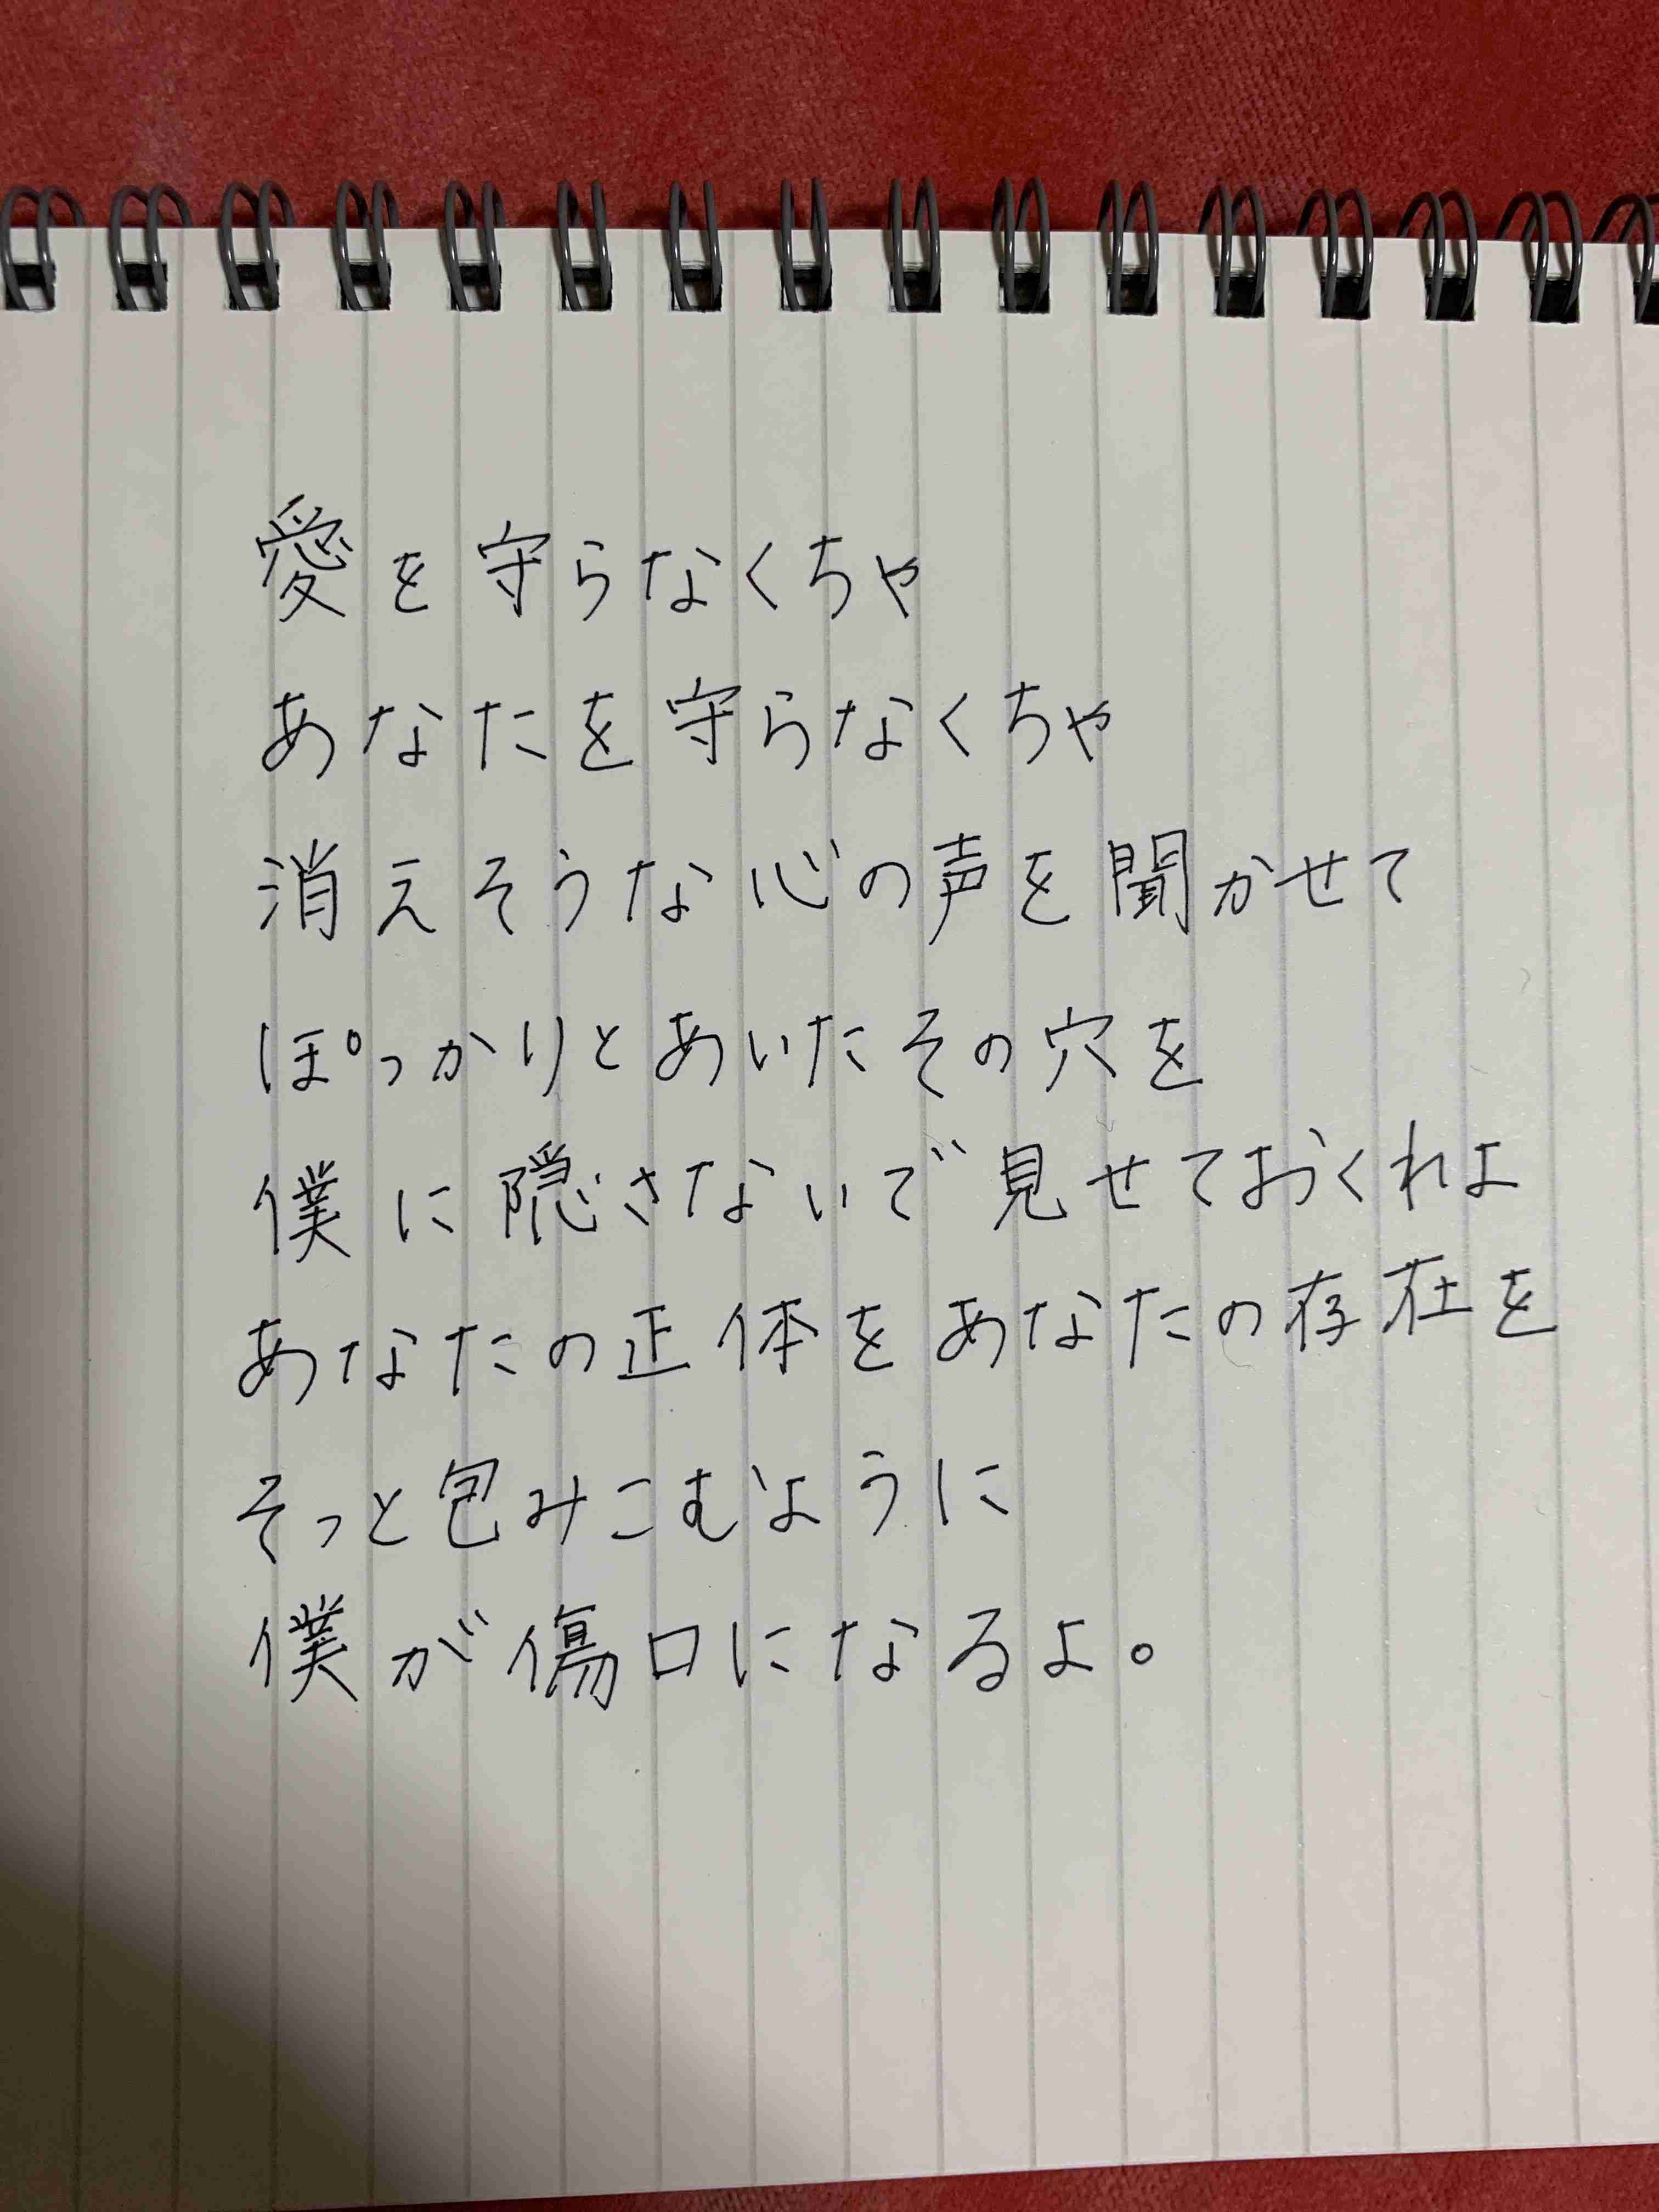 愛を守らなくちゃ
あなたを守らなくちゃ
消えそうな心の声を聞かせて
ぽっかりとあいたその穴を
僕に隠さないで見せておくれよ
あなたの正体をあなたの存在を
そっと包みこむように
僕が傷口になるよ。